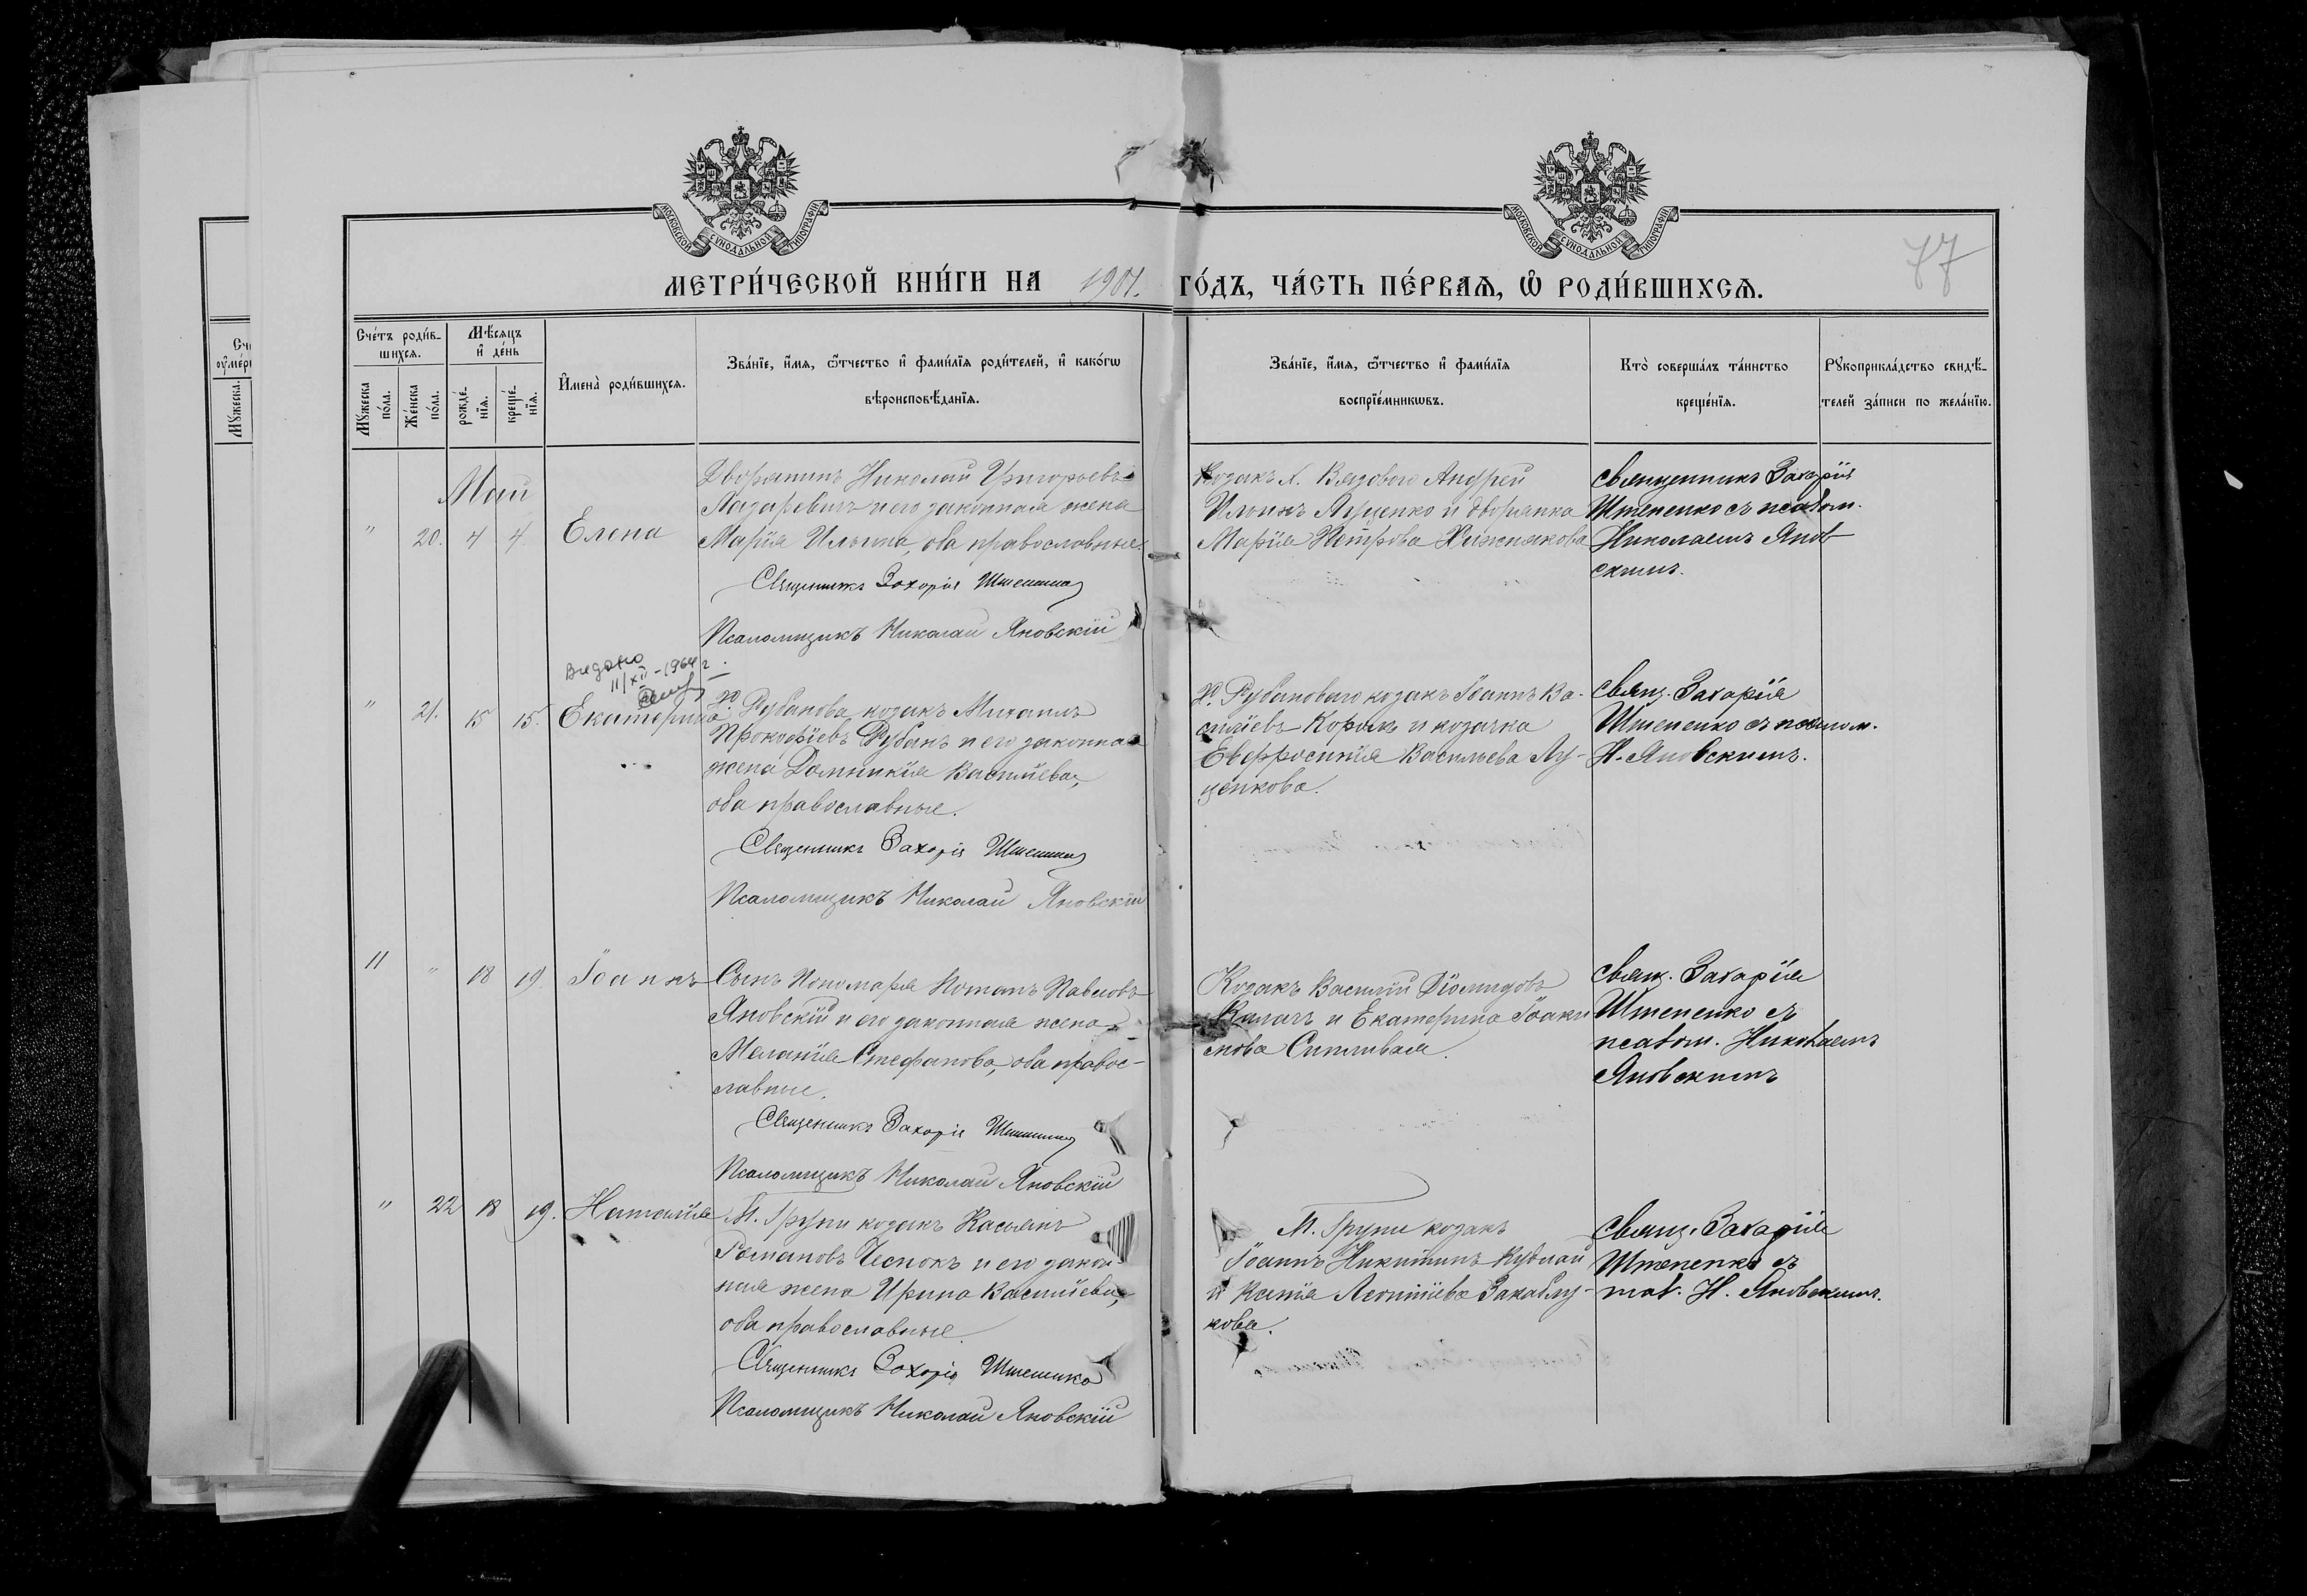 МОСКОВСКОЙ СѴНОДАЛЬНОЙ ТИПОГРАФІИ
МОСКОВСКОЙ СѴНОДАЛЬНОЙ ТИПОГРАФІИ
77
МЕТРИ́ЧЕСКОЙ КНИ́ГИ НА 1901. ГО́ДЪ, ЧА́СТЬ ПЕ́РВАѦ, Ѡ҆ РОДИ́ВШИХСѦ.
Сче́тъ роди́в-
шихсѧ.
Мꙋжеска по́ла.
Же́нска по́ла.
Мѣ́сѧцъ
и҆ де́нь
рожде́-
нїѧ.
креще́-
нїѧ.
И҆мена̀ роди́вшихсѧ.
Зва́нїе, и҆́мѧ, ѻ҆́тчество и҆ фами́лїѧ роди́телей, и҆ како́гѡ
вѣроисповѣ́данїѧ.
Зва́нїе, и҆́мѧ, ѻ҆́тчество и҆ фами́лїѧ
воспрїе́мникѡвъ.
Кто̀ соверша́лъ та́инство
креще́нїѧ.
Рꙋкоприкла́дство свидѣ́-
телей за́писи по жела́нїю.
Май
" 20. 4 4. Елена
Дворянинъ Николай Григорьевъ
Лазаревичъ и его законная жена
Марія Ильина, оба православные.
Священникъ Захарія Штепенко
Псаломщикъ Николай Яновскій
Козакъ х. Вязового Андрей
Ильинъ Луценко и дворянка
Марія Петрова Хижнякова
Священникъ Захарія
Штепенко съ псалом.
Николаемъ Янов
скимъ.
Видано
11/XII-1964 г.
" 21. 15 15. Екатерина
х. Рубанова козакъ Михаилъ
Прокофіевъ Рубанъ и его законная
жена Домникія Василіева,
оба православные.
Священникъ Захарія Штепенко
Псаломщикъ Николай Яновскій
х. Рубанового козакъ Іоаннъ Ва-
силіевъ и козачка
Евфросинія Васильева Лу-
ценкова.
Свящ. Захарія
Штепенко съ псалом.
Н. Яновскимъ.
11 " 18 19. Іоаннъ
Сынъ Пономаря Потапъ Павловъ
Яновскій и его законная жена
Меланія Стефанова, оба правос-
лавные.
Священникъ Захарія Штепенко
Псаломщикъ Николай Яновскій
Козакъ Василій Діомидовъ
Калачъ и Екатерина Іоаки
мова Сипливая.
Свящ. Захарія
Штепенко съ
псалом. Николаемъ
Яновскимъ
" 22 18 19. Наталія
М. Груни козакъ Касьянъ
Романовъ Чеснокъ и его закон-
ная жена Ирина Василіева,
оба православные.
Священникъ Захарія Штепенко
Псаломщикъ Николай Яновскій
М. Груни козакъ
Іоаннъ Никитинъ Кудлай
и Ксенія Леонтіева Закаблу-
кова.
Свящ. Захарія
Штепенко съ
Н. Яновскимъ.